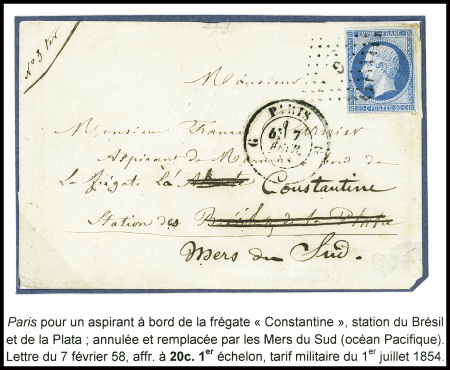 No 3 Ter
EMPIRE FRANC
20 C POSTES 20 C
G
PARIS
7
FEVR
58
G
Monsieur
Monsieur
Aspirant de Marine bord de
La frégate La Constantine
Station de Brésil & de la Plata
Mers du Sud.
Paris pour un aspirant à bord de la frégate « Constantine », station du Brésil
et de la Plata ; annulée et remplacée par les Mers du Sud (océan Pacifique).
Lettre du 7 février 58, affr. à 20c. 1er échelon, tarif militaire du 1er juillet 1854.